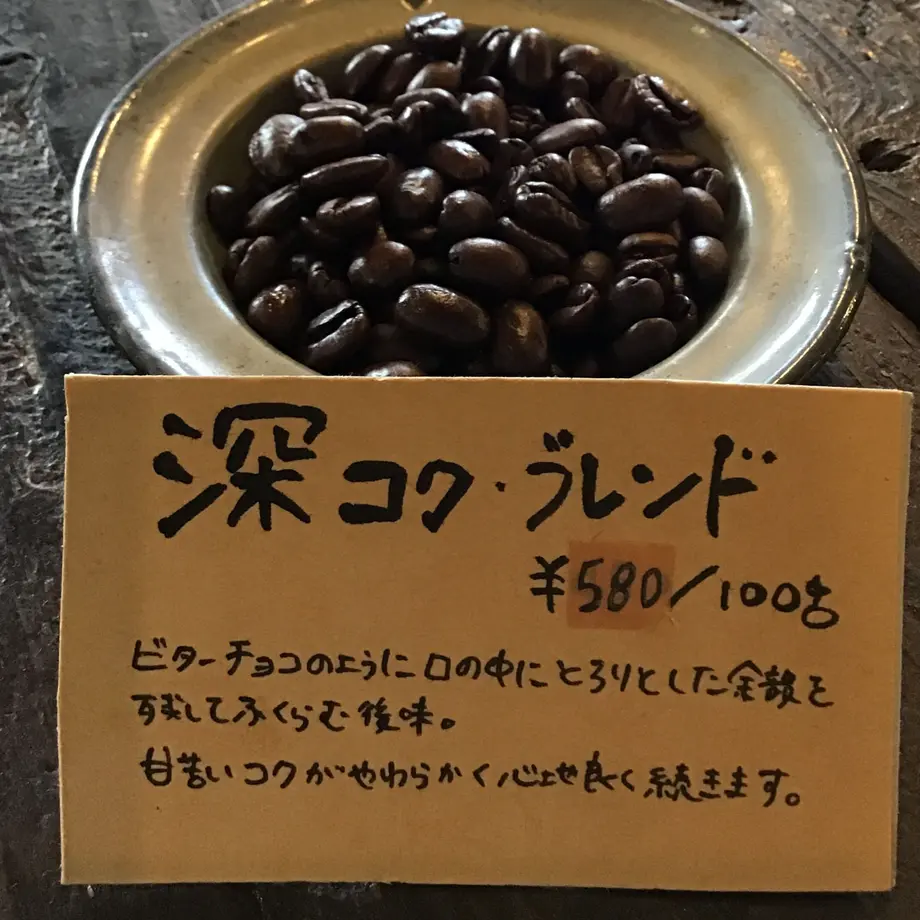 深コク・ブレンド
¥580/100g
ビターチョコのように口の中にとろりとした余韻を
残してふくらむ後味。
甘苦いコクがやわらかく心地良く続きます。